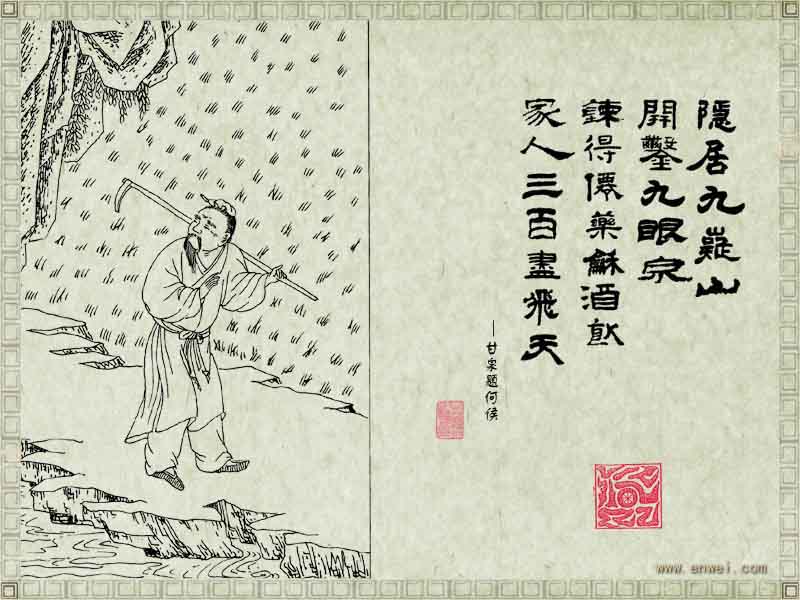 隱居九嶷山
開鑿九眼泉
鍊得僊藥龢酒飲
家人三百盡飛天
—甘泉題何侯
www.enwei.com